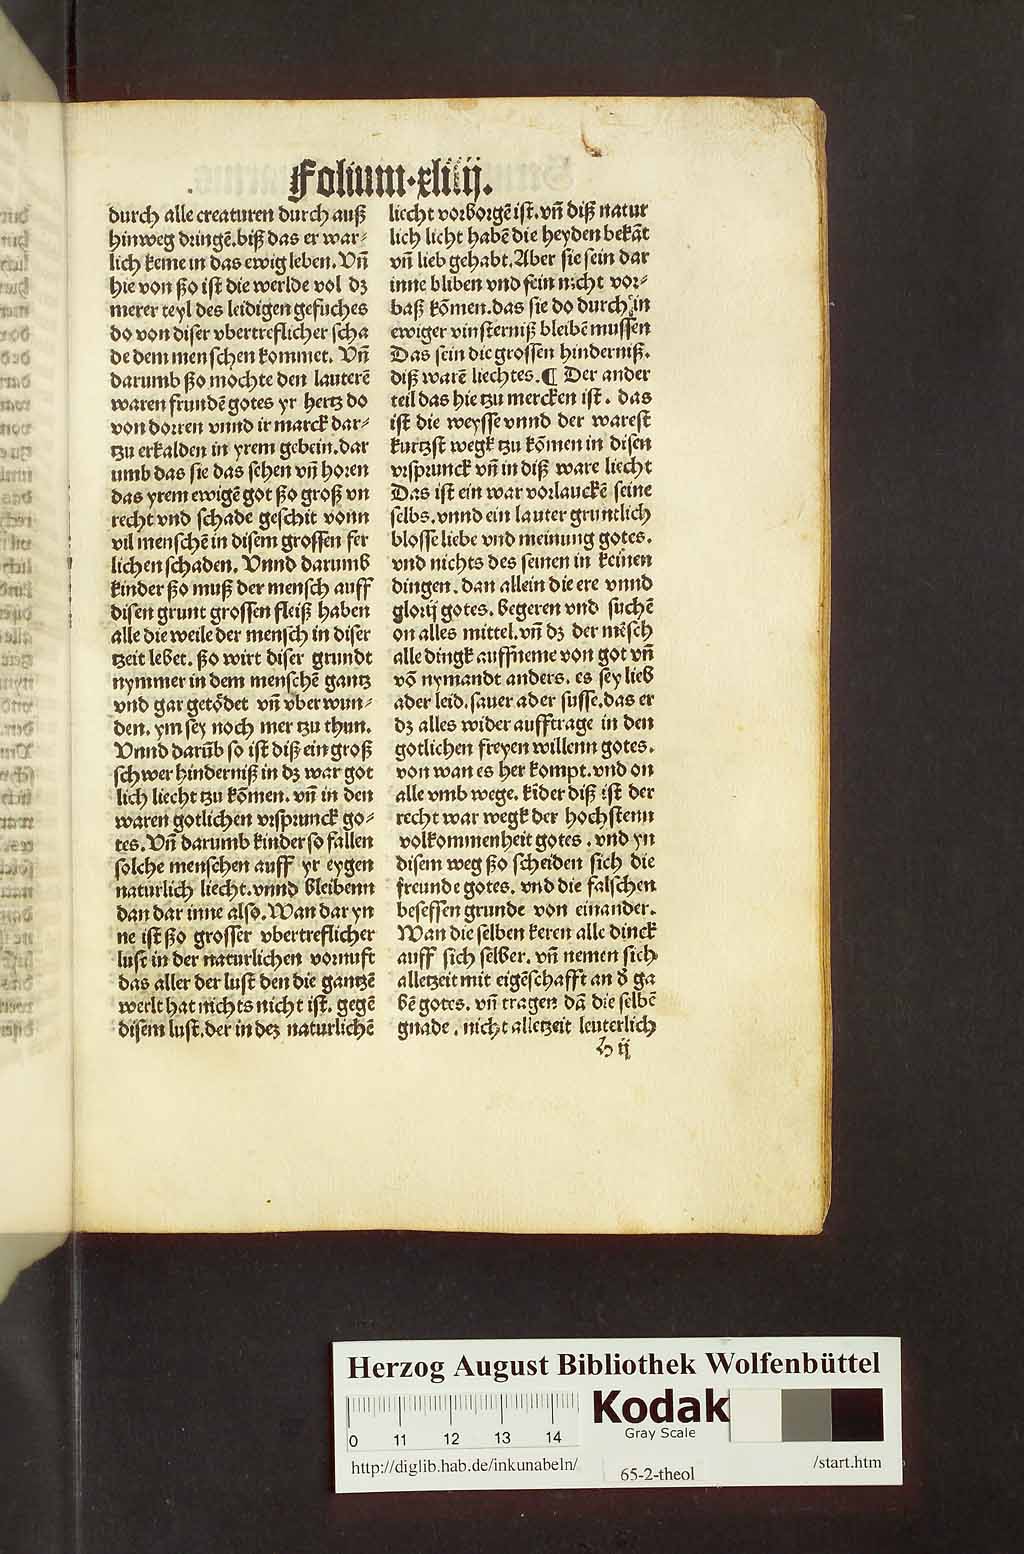 Folium·xliiij.
durch alle creaturen durch auß
hinweg dringē. biß das er war⸗
lich keme in das ewig leben. Vn̄
hie von ßo ist die werlde vol dʒ
merer teyl des leidigen gesuches
do von diser vbertreflicher scha
de dem menschen kommet. Vn̄
darumb ßo mochte den lauterē
waren frundē gotes yr hertz do
von dorren vnnd ir marck dar⸗
tzu erkalden in yrem gebein. dar
umb das sie das sehen vn̄ horen
das yrem ewigē got ßo groß vn
recht vnd schade geschit vonn
vil menschē in disem grossen fer
lichen schaden. Vnnd darumb
kinder ßo muß der mensch auff
disen grunt grossen fleiß haben
alle die weile der mensch in diser
tzeit lebet. ßo wirt diser grundt
nymmer in dem menschē gantz
vnd gar getödet vn̄ vber wun⸗
den. ym sey noch mer tzu thun.
Vnnd darūb so ist diß ein groß
schwer hinderniß in dʒ war got
lich liecht tzu kōmen. vn̄ in den
waren gotlichen vrsprunck go⸗
tes. Vn̄ darumb kinder so fallen
solche menschen auff yr eygen
naturlich liecht. vnnd bleibenn
dan dar inne also. Wan dar yn
ne ist ßo grosser vbertreflicher
lust in der naturlichen vornuft
das aller der lust den die gantzē
werlt hat nichts nicht ist. gegē
disem lust. der in deʒ naturlichē
liecht vorborgē ist. vn̄ diß natur
lich licht habē die heyden bekāt
vn̄ lieb gehabt. Aber sie sein dar
inne bliben vnd sein nicht vor⸗
baß kōmen. das sie do durch in
ewiger vinsterniß bleibē mussen
Das sein die grossen hinderniß.
diß warē liechtes. ¶ Der ander
teil das hie tzu mercken ist. das
ist die weysse vnnd der warest
kurtzst wegk tzu kōmen in disen
vrsprunck vn̄ in diß ware liecht
Das ist ein war vorlauckē seine
selbs. vnnd ein lauter gruntlich
blosse liebe vnd meinung gotes.
vnd nichts des seinen in keinen
dingen. dan allein die ere vnnd
glorij gotes. begeren vnd suchē
on alles mittel. vn̄ dʒ der mēsch
alle dingk auffneme von got vn̄
vō nymandt anders. es sey lieb
ader leid. sauer ader susse. das er
dʒ alles wider aufftrage in den
gotlichen freyen willenn gotes.
von wan es her kompt. vnd on
alle vmb wege. kīder diß ist der
recht war wegk der hochstenn
volkommenheit gotes. vnd yn
disem weg ßo scheiden sich die
freunde gotes. vnd die falschen
besessen grunde von einander.
Wan die selben keren alle dinck
auff sich selber. vn̄ nemen sich
alletzeit mit eigēschafft an ď ga
bē gotes. vn̄ tragen dā die selbē
gnade. nicht alletzeit leuterlich
h ij
Herzog August Bibliothek Wolfenbüttel
0 11 12 13 14
Kodak
Gray Scale
http://diglib.hab.de/inkunabeln/
65-2-theol
/start.htm